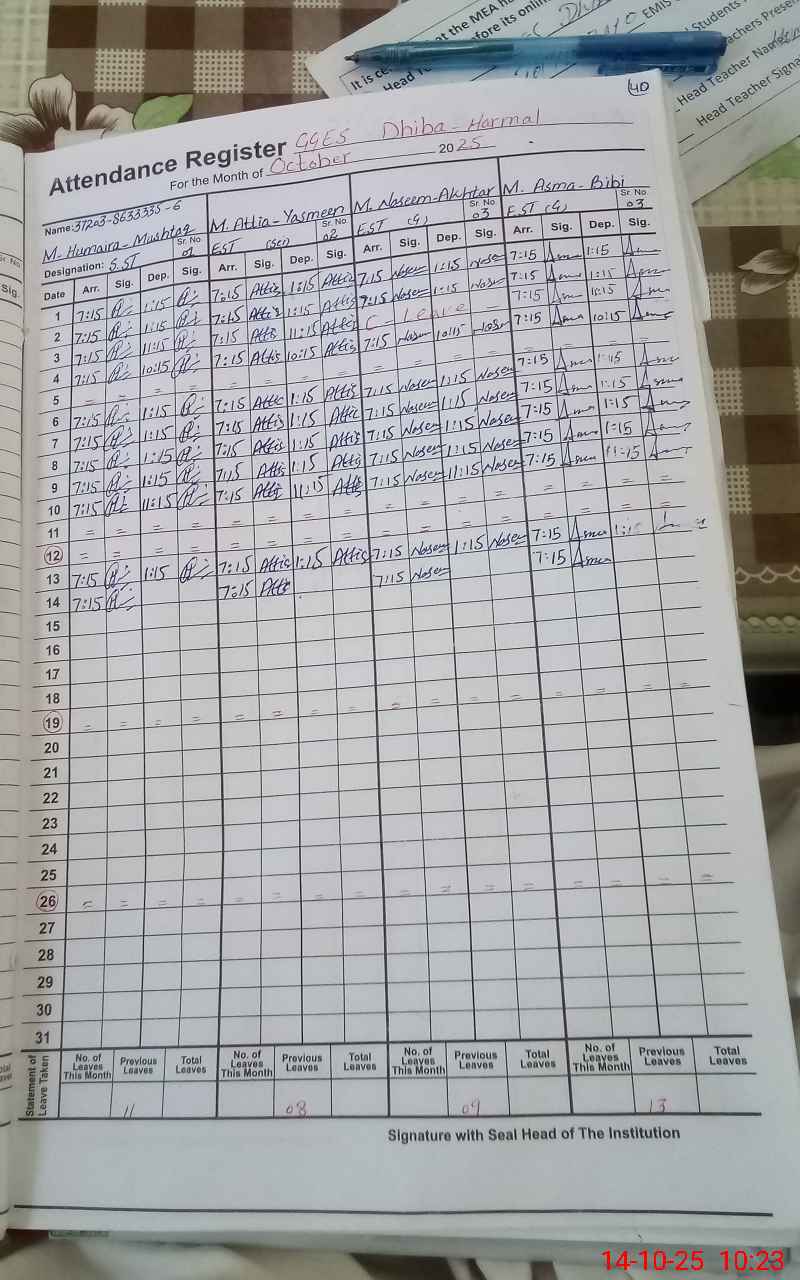 at the MEA
fore its online
EMIS
It is ce
Students
Head Te
Teachers Presen
Head Teacher Name
Head Teacher Signa
40
Attendance Register GGES Dhiba-Harmal
For the Month of October 2025
Name: 37203-8633335-6
M. Humaira-Mushtaq M. Attia-Yasmeen M. Naseem-Akhtar M. Asma-Bibi
Designation: S.ST Sr. No. 01 EST (Sci) Sr. No. 02 EST (G) Sr. No. 03 EST (G) Sr. No. 03
Date Arr. Sig. Dep. Sig. Arr. Sig. Dep. Sig. Arr. Sig. Dep. Sig. Arr. Sig. Dep. Sig.
1 7:15 1:15 7:15 Attis 1:15 Attis 7:15 Naseem 1:15 Naseem 7:15 Asma 1:15 Asma
2 7:15 1:15 7:15 Attis 1:15 Attis 7:15 Naseem 1:15 Naseem 7:15 Asma 1:15 Asma
3 7:15 11:15 7:15 Attis 11:15 Attis C - Leave 7:15 Asma 11:15 Asma
4 7:15 10:15 7:15 Attis 10:15 Attis 7:15 Naseem 10:15 Naseem 7:15 Asma 10:15 Asma
5 = = = = = = = = = = = = = = = =
6 7:15 1:15 7:15 Attis 1:15 Attis 7:15 Naseem 1:15 Naseem 7:15 Asma 1:15 Asma
7 7:15 1:15 7:15 Attis 1:15 Attis 7:15 Naseem 1:15 Naseem 7:15 Asma 1:15 Asma
8 7:15 1:15 7:15 Attis 1:15 Attis 7:15 Naseem 1:15 Naseem 7:15 Asma 1:15 Asma
9 7:15 1:15 7:15 Attis 1:15 Attis 7:15 Naseem 1:15 Naseem 7:15 Asma 1:15 Asma
10 7:15 11:15 7:15 Attis 11:15 Attis 7:15 Naseem 11:15 Naseem 7:15 Asma 11:15 Asma
11 = = = = = = = = = = = = = = = =
12 = = = = = = = = = = = = = = = =
13 7:15 1:15 7:15 Attis 1:15 Attis 7:15 Naseem 1:15 Naseem 7:15 Asma 1:15
14 7:15 7:15 Attis 7:15 Naseem 7:15 Asma
15
16
17
18
19 = = = = = = = = = = = = = = = =
20
21
22
23
24
25
26 = = = = = = = = = = = = = = = =
27
28
29
30
31
Statement of Leave Taken
No. of Leaves This Month Previous Leaves Total Leaves No. of Leaves This Month Previous Leaves Total Leaves No. of Leaves This Month Previous Leaves Total Leaves No. of Leaves This Month Previous Leaves Total Leaves
11 08 09 13
Signature with Seal Head of The Institution
14-10-25 10:23